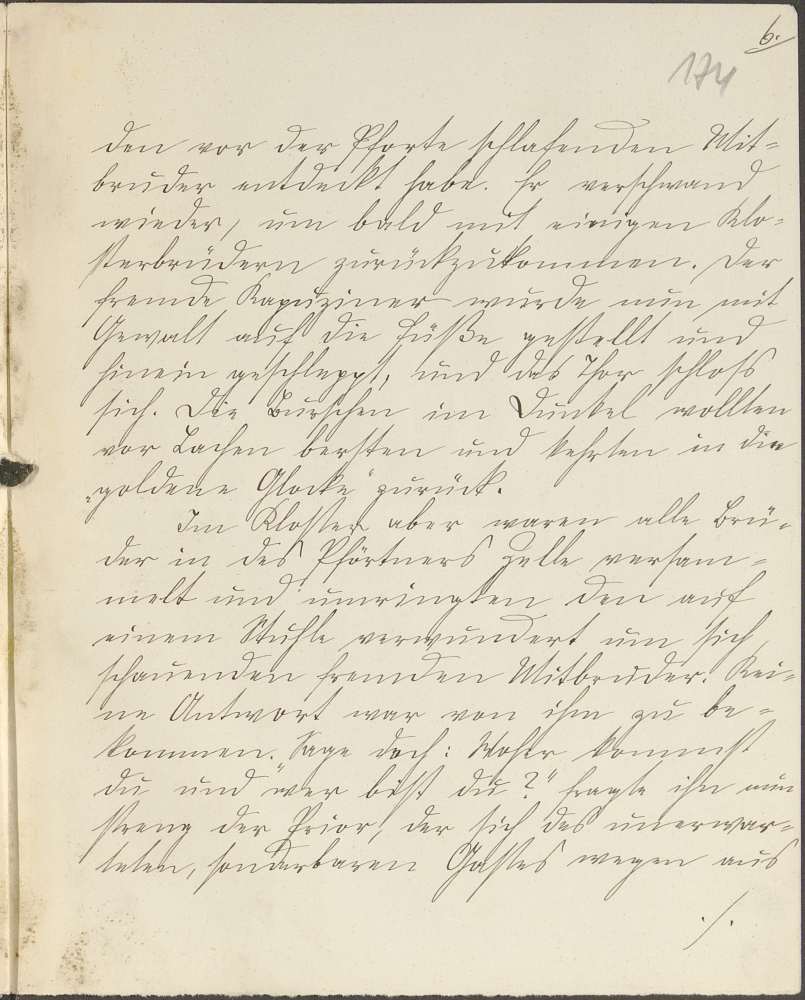 6.
174
den vor der Pforte schlafenden Mit-
bruder entdeckt habe. Er verschwand
wieder, um bald mit einigen Klo-
sterbrüdern zurückzukommen. Der
fremde Kapuziner wurde nun mit
Gewalt auf die Füße gestellt und
hinein geschleppt, und das Thor schloß
sich. Die Burschen im Dunkel wollten
vor Lachen bersten und kehrten in die
"goldene Glocke" zurück.
Im Kloster aber waren alle Brü-
der in des Pförtners Zelle versam-
melt und umringten den auf
einem Stuhle verwundert um sich
schauenden fremden Mitbruder. Kei-
ne Antwort war von ihm zu be-
kommen. Sage doch: Woher kommst
du und "wer bist du?" fragte ihn nun
streng der Prior, der sich des unerwar-
teten, sonderbaren Gastes wegen aus
./.